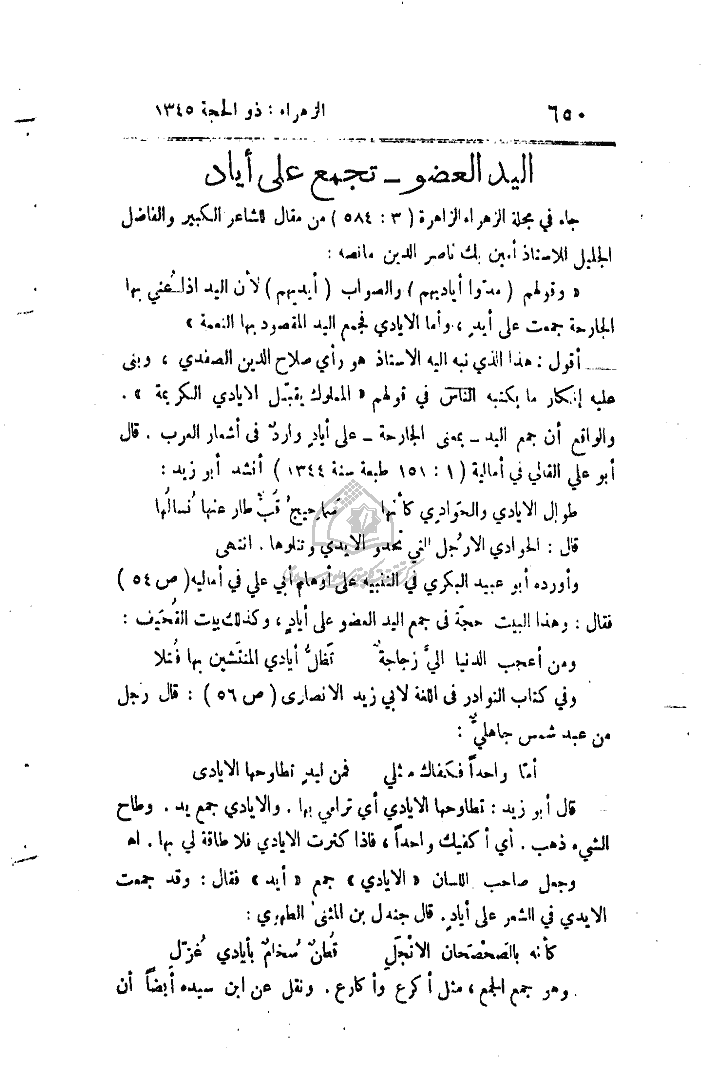 ٦٥٠ الزهراء : ذو الحجة ١٣٤٥
اليد العضو ــ تجمع على أياد
جاء في مجلة الزهراء الزاهرة ( ٣ : ٥٨٤ ) من مقال للشاعر الكبير والفاضل
الجليل للاستاذ أمين بك ناصر الدين مانصه :
« وقولهم ( مدّوا أياديهم ) والصواب ( أيديهم ) لأن اليد اذا عُني بها
الجارحة جمعت على أيدٍ ، وأما الايادي فجمع اليد المقصود بها النعمة »
أقول : هذا الذي نبه اليه الاستاذ هو رأي صلاح الدين الصفدي ، وبنى
عليه إنكار ما يكتبه الناس في قولهم « المملوك يقبّل الايادي الكريمة » .
والواقع أن جمع اليد ــ بمعنى الجارحة ــ على أيادٍ واردٌ فى أشعار العرب . قال
أبو علي القالي في أمالية ( ١ : ١٥١ طبعة سنة ١٣٤٤ ) أنشد أبو زيد :
طوال الايادي والحوادي كأنها سماحيجُ قُبٌّ طار عنها نُسالُها
قال : الحوادي الارجل التي تحدو الايدي وتتلوها . انتهى
وأورده أبو عبيد البكري في التنبيه على أوهام أبي علي في أماليه ( ص ٥٤ )
فقال : وهذا البيت حجة فى جمع اليد العضو على أيادٍ ، وكذلك بيت القُحَيف :
ومن أعجب الدنيا اليَّ زجاجةٌ تَظَلُّ أيادي المنتشين بها فُتلا
وفي كتاب النوادر فى اللغة لابي زيد الانصارى ( ص ٥٦ ) : قال رجل
من عبد شمس جاهليٌّ :
أمّا واحداً فكفاك مثلي فمن ليدٍ تطاوحها الايادى
قال أبو زيد : تطاوحها الايادي أي ترامي بها . والايادي جمع يد . وطاح
الشيء ذهب . أي أكفيك واحداً ، فاذا كثرت الايادي فلا طاقة لي بها . اه
وجعل صاحب اللسان « الايادي » جمع « أيد » فقال : وقد جمعت
الايدي في الشعر على أيادٍ . قال جندل بن المثنى الطهري :
كأنه بالصَحْصَحان الانْجَلِ قُطنٌ سُخامٌ بأيادي غُزّل
وهو جمع الجمع ، مثل أكرع وأكارع . ونقل عن ابن سيده أيضاً أن